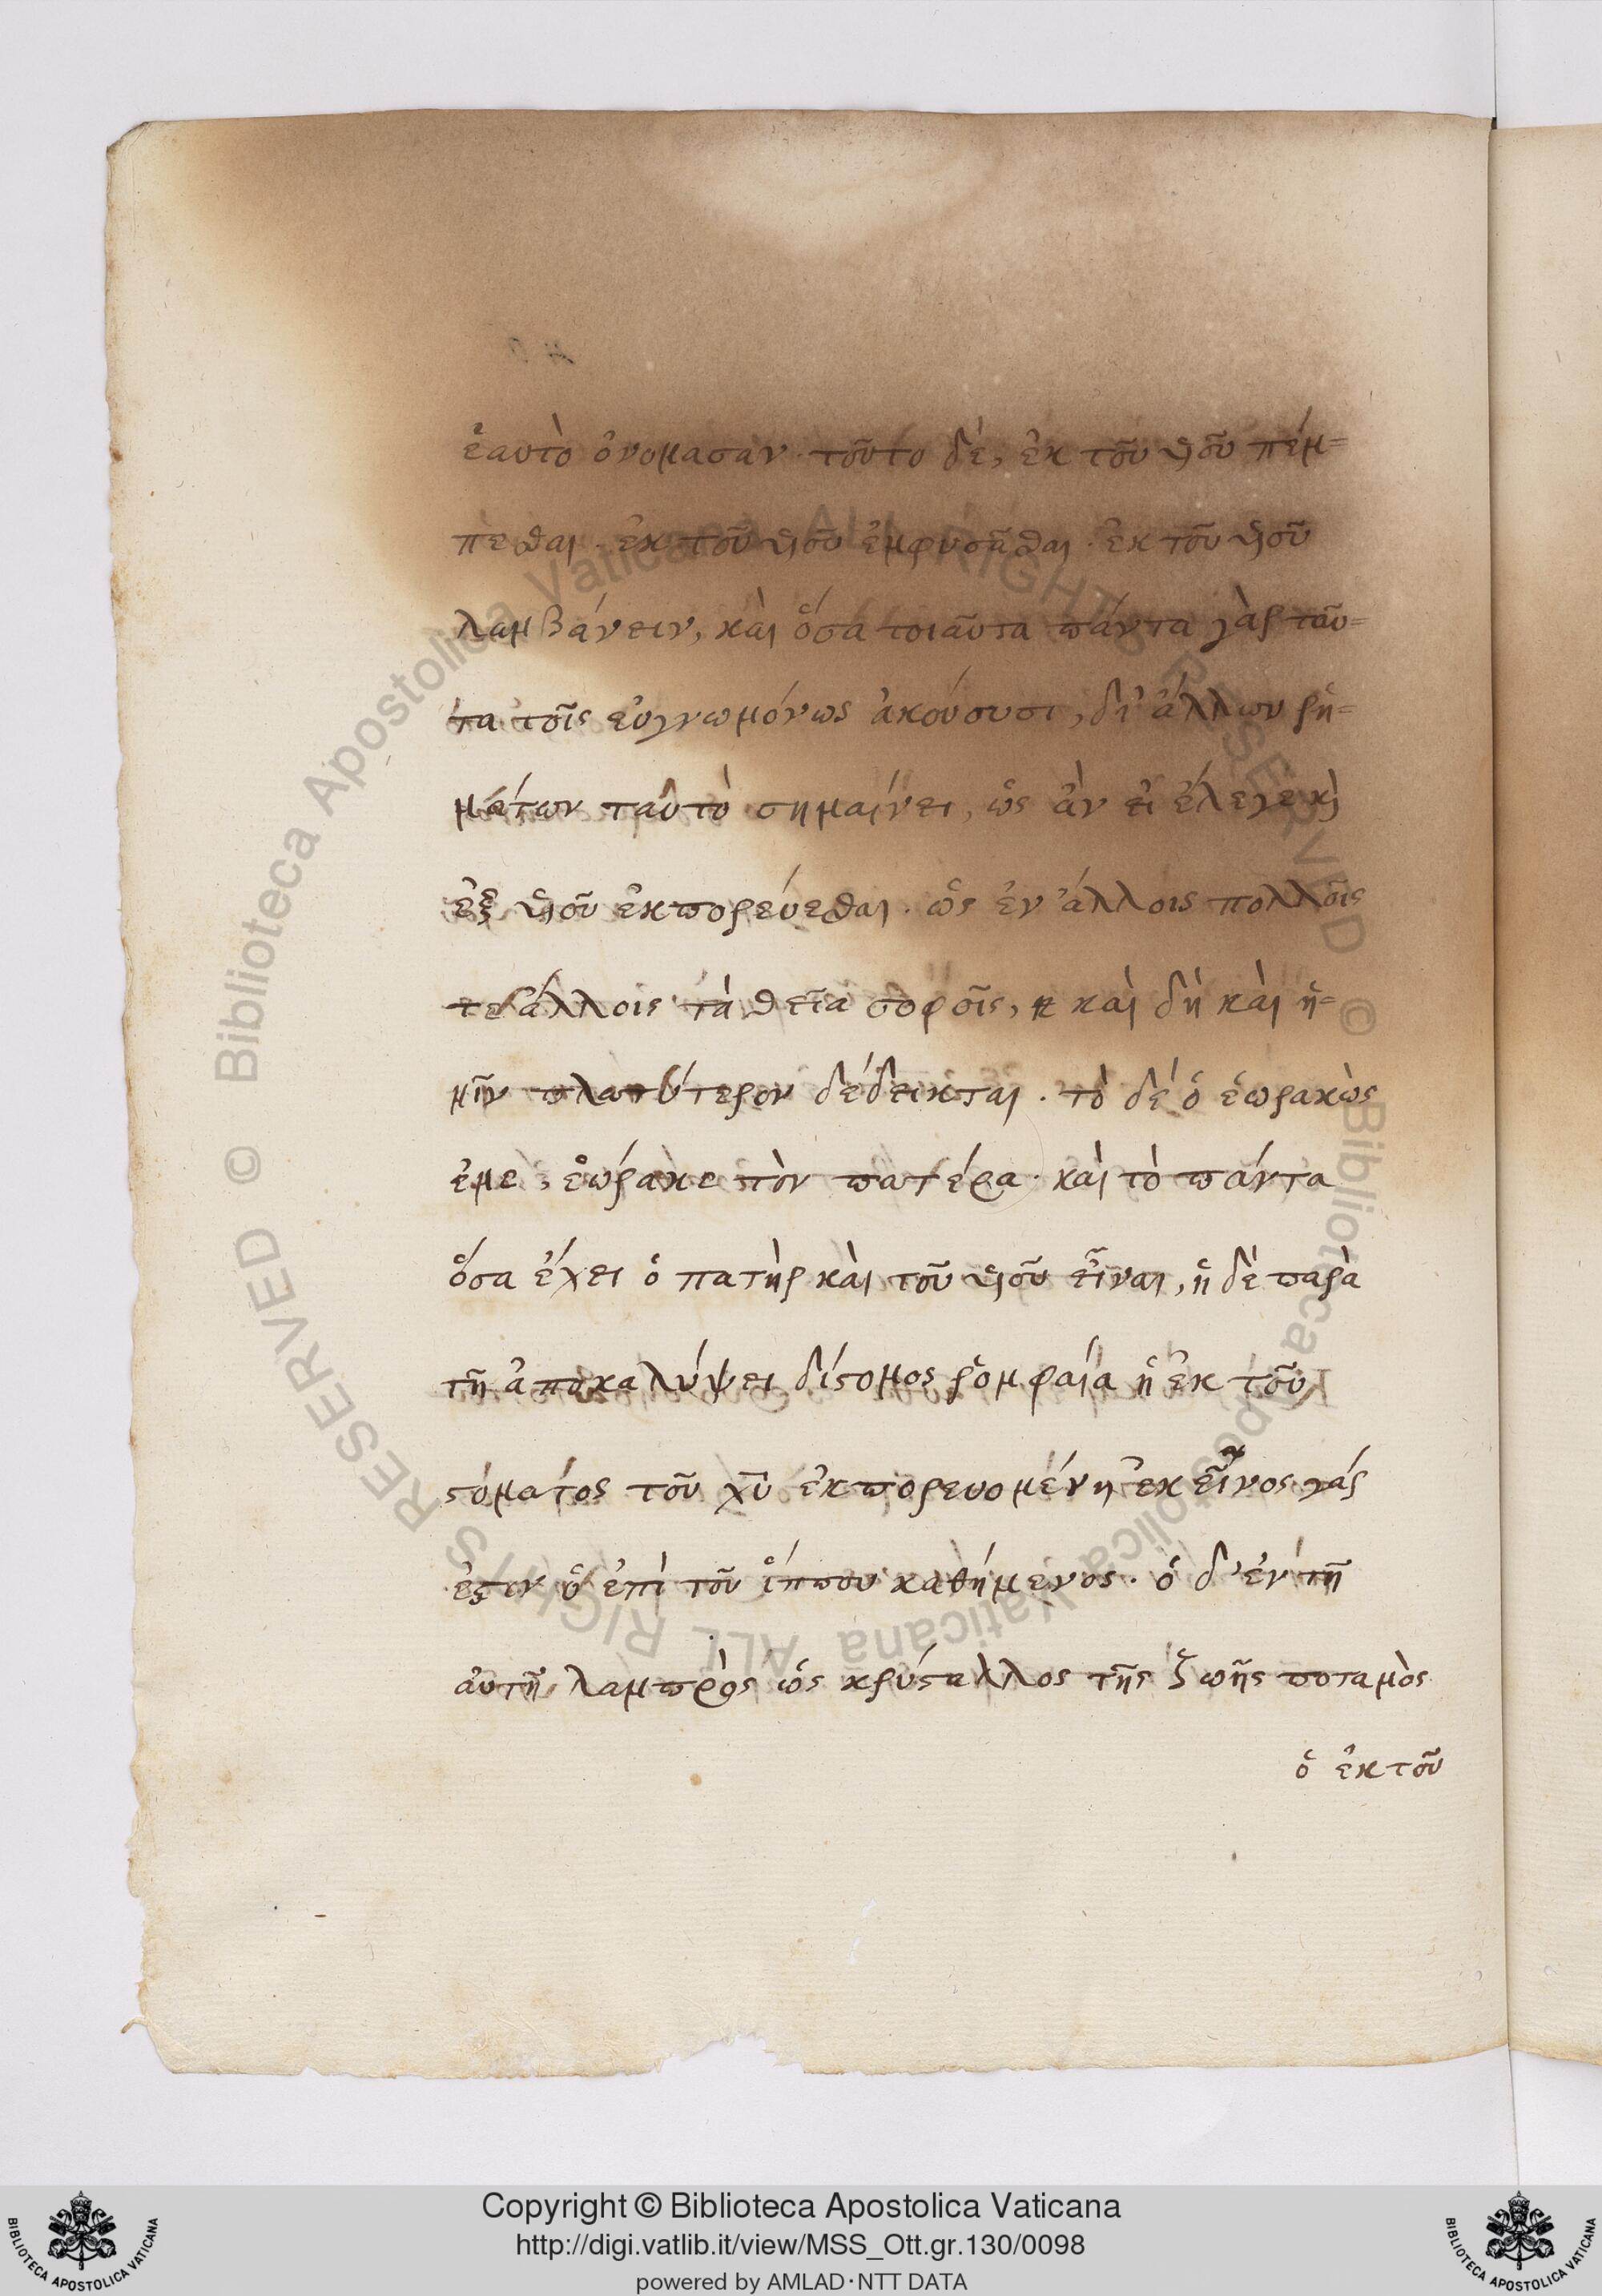 ἑαυτὸ ὀνομασαν· τοῦτο δὲ, ἐκ τοῦ υἱοῦ πέμ=
πεσθαι· ἐκ τοῦ υἱοῦ ἐμφυσᾶσθαι· ἐκ τοῦ υἱοῦ
λαμβάνειν, καὶ ὅσα τοιαῦτα πάντα γὰρ ταῦ=
τα τοῖς εὐγνωμόνως ἀκούουσι, δι' ἄλλων ῥη=
μάτων ταὐτὸ σημαίνει, ὡς ἂν εἰ ἔλεγε κὶ
ἐξ υἱοῦ ἐκπορεύεσθαι· ὡς ἐν ἄλλοις πολλοῖς
τε ἄλλοις τὰ θεῖα σοφοῖς, κ καὶ δὴ καὶ ἡ=
μῖν πλατύτερον δέδεικται· τὸ δὲ ὁ ἑωρακὼς
ἐμὲ, ἑώρακε τὸν πατέρα· καὶ τὸ πάντα
ὅσα ἔχει ὁ πατὴρ καὶ τοῦ υἱοῦ εἶναι, ἡ δὲ παρὰ
τῇ ἀποκαλύψει δίστομος ῥομφαία ἡ ἐκ τοῦ
στόματος τοῦ χυ ἐκπορευομένη ἐκεῖνος γάρ
ἐστιν ὁ ἐπὶ τοῦ ἵππου καθήμενος· ὁ δ' ἐν τῇ
αὐτῇ λαμπρὸς ὡς κρύσταλλος τῆς ζωῆς ποταμὸς
ὁ ἐκ τοῦ
© Biblioteca Apostolica Vaticana ALL RIGHTS RESERVED © Biblioteca Apostolica Vaticana ALL RIGHTS RESERVED
BIBLIOTECA APOSTOLICA VATICANA
Copyright © Biblioteca Apostolica Vaticana
http://digi.vatlib.it/view/MSS_Ott.gr.130/0098
powered by AMLAD・NTT DATA
BIBLIOTECA APOSTOLICA VATICANA